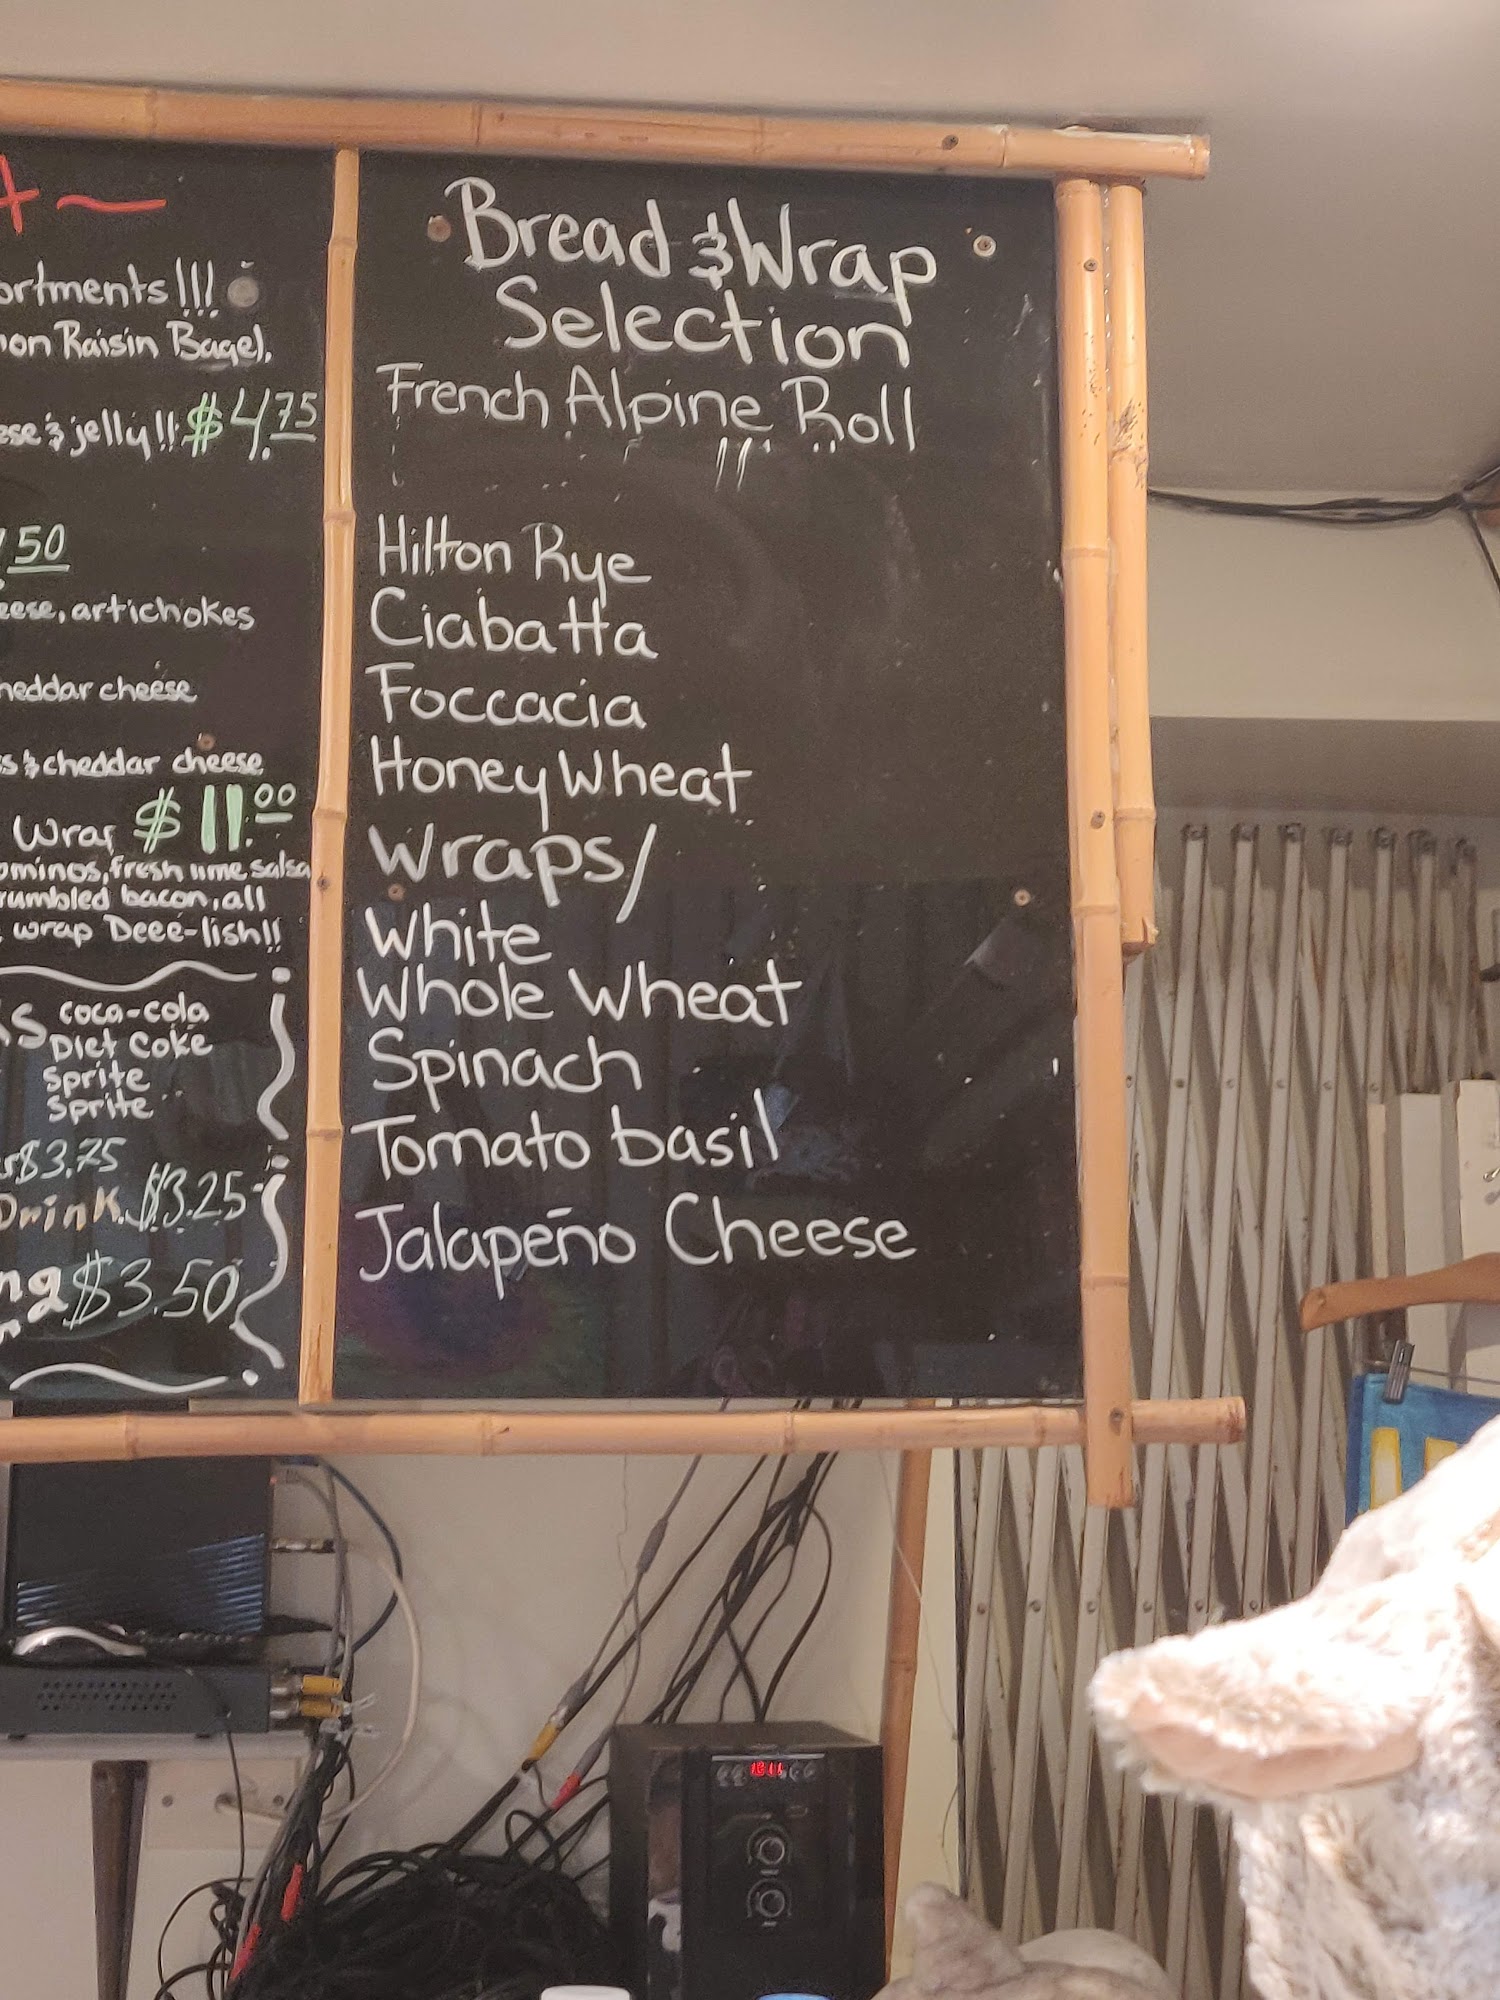 ortments!!!
Raisin Bagel,
& jelly!! $4.75
50
artichokes
cheddar cheese
& cheddar cheese
Wrap $11.00
fresh lime salsa
bacon, all
wrap Deee-lish!!
coca-cola
Diet Coke
Sprite
Sprite
$3.75
Drink $3.25
$3.50
Bread & Wrap
Selection
French Alpine Roll
Hilton Rye
Ciabatta
Foccacia
Honey Wheat
Wraps/
White
Whole Wheat
Spinach
Tomato basil
Jalapeño Cheese